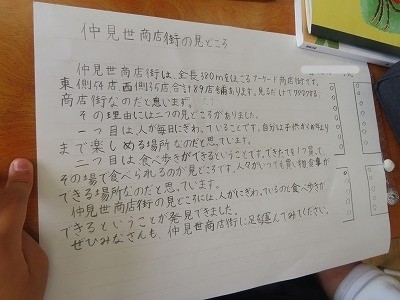 仲見世商店街の見どころ
仲見世商店街は、全長380mをほこるアーケード商店街です。
東側54店西側35店合計89店舗あります。見るだけでワクワクする
商店街なのだと思います。
その理由には二つの見どころがありました。
一つ目は人が毎日にぎわっていることです。自分は子供からお年より
まで楽しめる場所なのだと思っています。
二つ目は食べ歩きができるということです。できたてを1つ買って
その場で食べられるのが見どころです。人々がいつでも買い物食事が
できる場所なのだと思っています。
仲見世商店街の見どころには、人がにぎわっているのと食べ歩きが
できるということが発見できました。
ぜひみなさんも、仲見世商店街に足を運んでみてください。